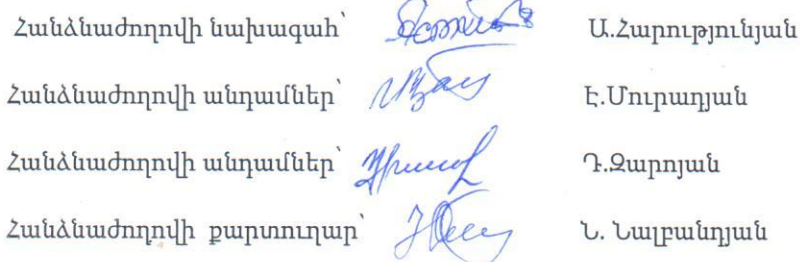 Հանձնաժողովի նախագահ՝ Ա.Հարությունյան
Հանձնաժողովի անդամներ՝ Է.Մուրադյան
Հանձնաժողովի անդամներ՝ Դ.Զարոյան
Հանձնաժողովի քարտուղար՝ Ն. Նալբանդյան